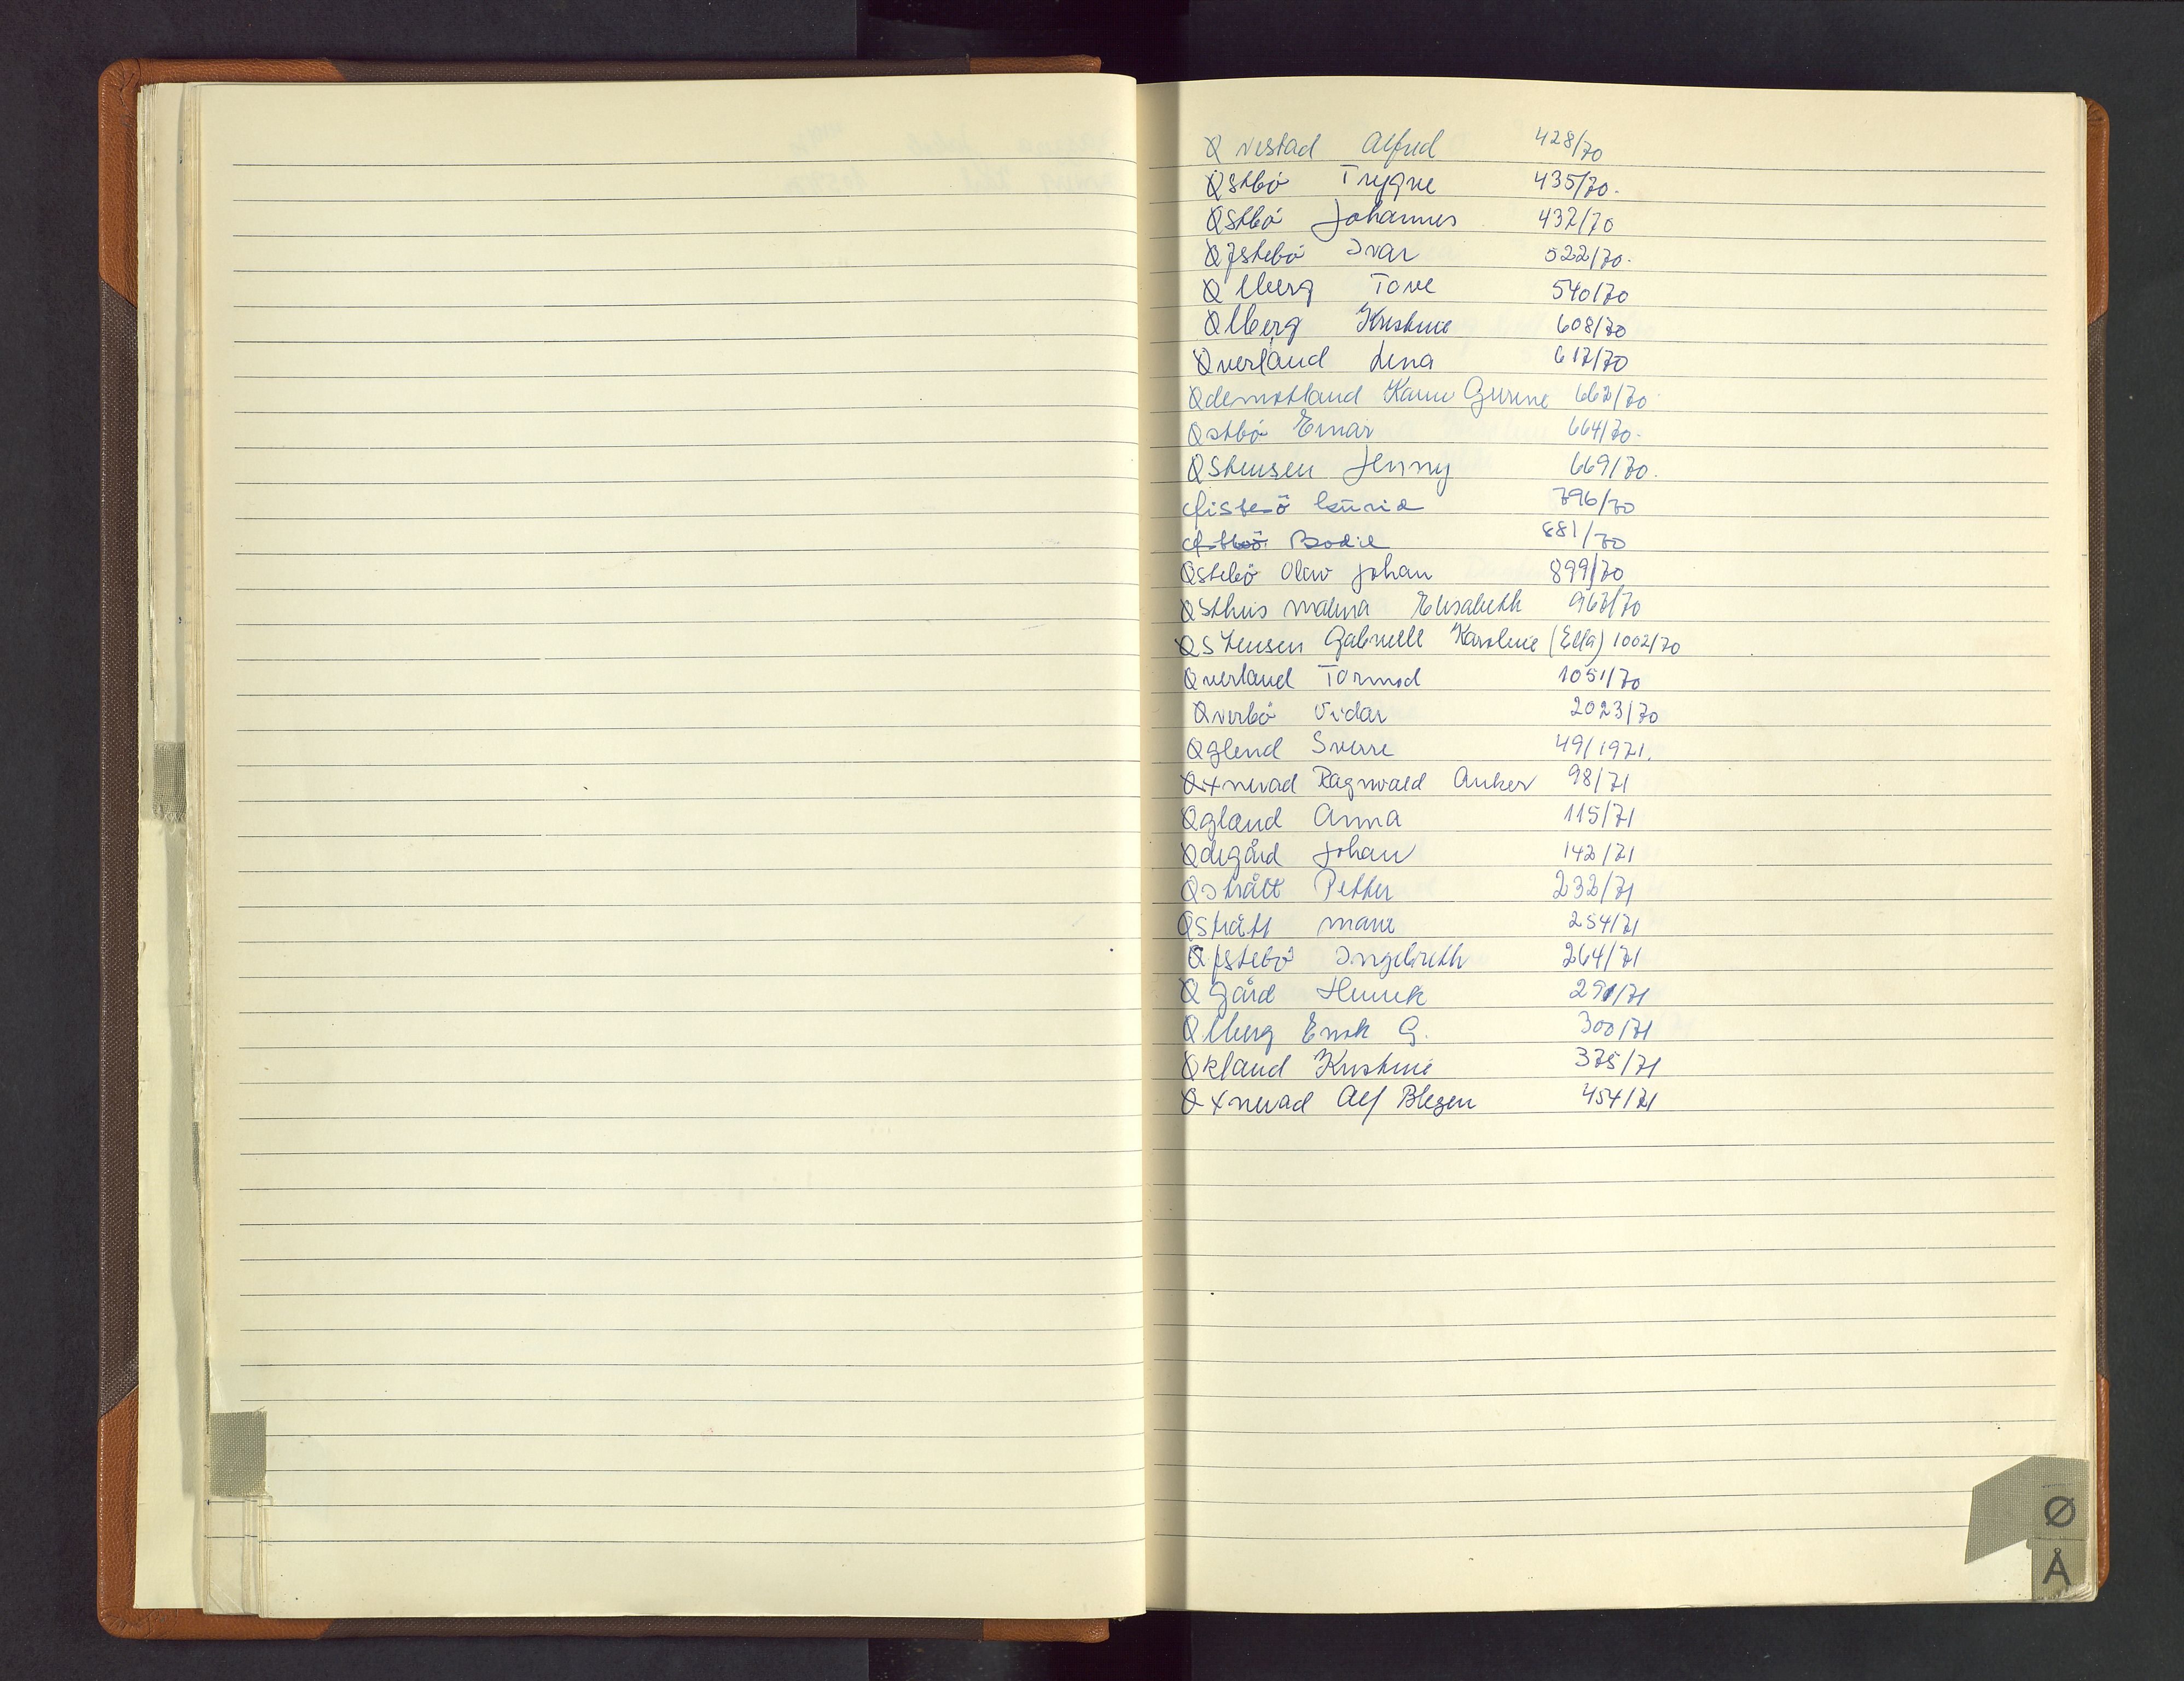 Øvestad Alfred 428/70
Østbö Trygve 435/70.
Østbö Johannes 432/70
Øfstebö Ivar 522/70.
Ølberg Tove 540/70
Ølberg Kristine 608/70
Øverland Lena 617/70
Ødemotland Karen Gurine 662/70
Østbö Einar 664/70.
Østensen Jenny 669/70.
796/70
Bodil 881/70
Østebö Olav Johan 899/70
Østhus Malena Elisabeth 967/70
Østensen Gabrielle Karoline (Ella) 1002/70
Øverland Tormod 1051/70
Øverbö Vidar 2023/70
Øglend Sverre 49/1971.
Øxnevad Ragnvald Anker 98/71
Øgland Anna 115/71
Ødegård Johan 142/71
Østrått Petter 232/71
Østrått Marie 254/71
Øfstebö Ingebreth 264/71
Øgård Henrik 291/71
Ølberg Enok G. 300/71
Økland Kristine 375/71
Øxnevad Alf Blegen 454/71
Ø
Å